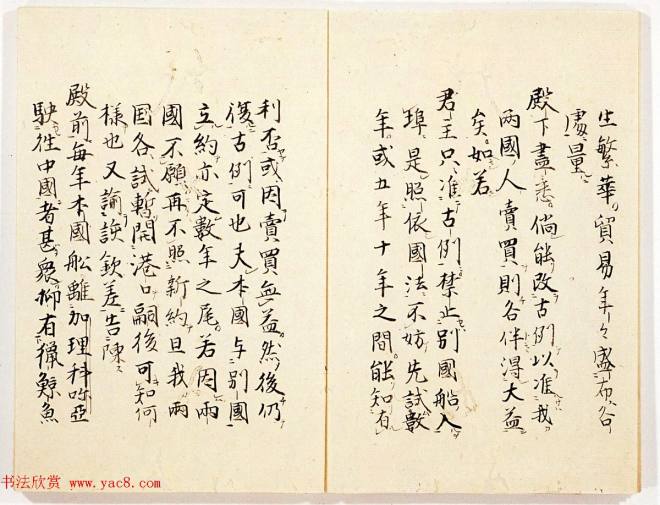 生繁華貿易年々盛而谷
處量
殿下盡悉倘能改古例以准我
兩國人賣買則各伴得大益
矣如若
君主只准古例禁止別國船入
埠是照依國法不妨先試數
年或五年十年之間能知有
利否或因賣買無益然後仍
復古例可也夫本國与別國
立約亦定數年之尾若因兩
國不願再不照新約旦我兩
国各試暫開港口嗣後可知何
樣也又諭該欽差告陳
殿前每年本國船離加理科吶亞
駛徃中國者甚衆抑有獵鯨魚
书法欣赏 www.yac8.com